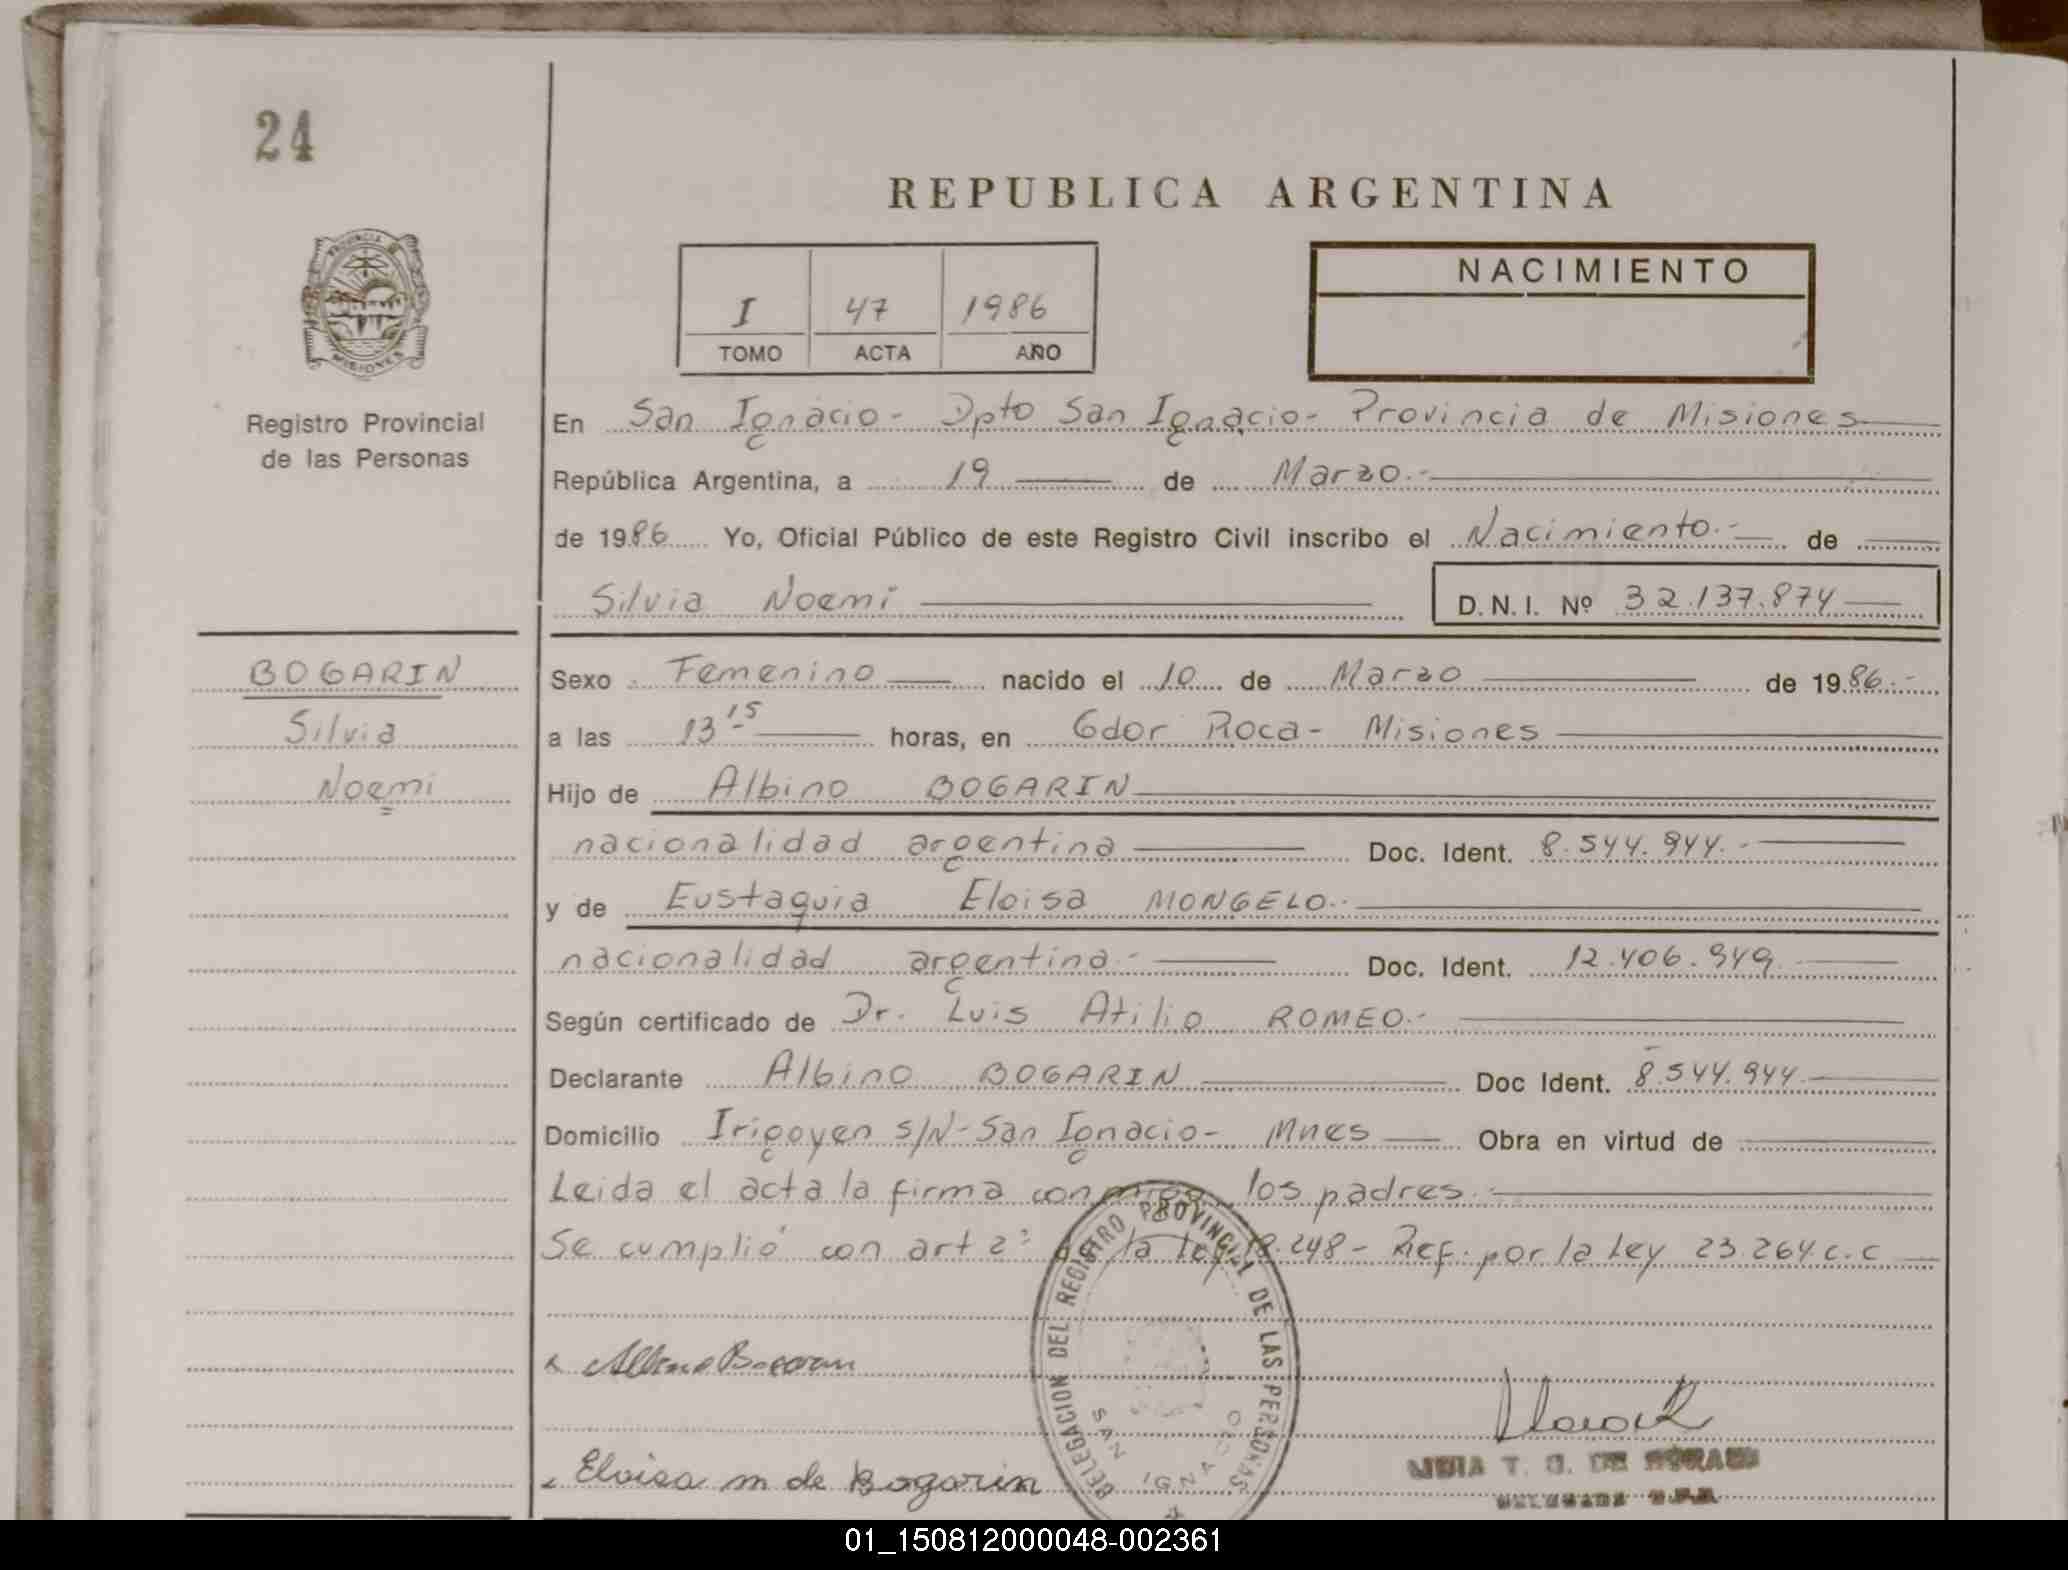 24
REPUBLICA ARGENTINA
PROVINCIA
MISIONES
Registro Provincial
de las Personas
I 47 1986
TOMO ACTA AÑO
NACIMIENTO
En San Ignacio- Dpto San Ignacio- Provincia de Misiones
República Argentina, a 19 de Marzo.-
de 1986 Yo, Oficial Público de este Registro Civil inscribo el Nacimiento.- de
Silvia Noemi D.N.I. Nº 32.137.874
BOGARIN
Silvia
Noemi
Sexo Femenino nacido el 10 de Marzo de 1986.-
a las 13 15 horas, en Gdor Roca- Misiones
Hijo de Albino BOGARIN
nacionalidad argentina Doc. Ident. 8.544.944.-
y de Eustaquia Eloisa MONGELO.-
nacionalidad argentina.- Doc. Ident. 12.406.949
Según certificado de Dr. Luis Atilio ROMEO.-
Declarante Albino BOGARIN Doc Ident. 8.544.944
Domicilio Irigoyen S/N-San Ignacio- Mnes Obra en virtud de
Leida el acta la firma conmigo los padres.-
Se cumplió con art 2º de la ley 18.248- Ref. por la Ley 23.264 c.c
x Albino Bogarin
Eloisa m de Bogarin
DELEGACION DEL REGISTRO PROVINCIAL DE LAS PERSONAS
SAN IGNACIO
T. G. DE
01_150812000048-002361